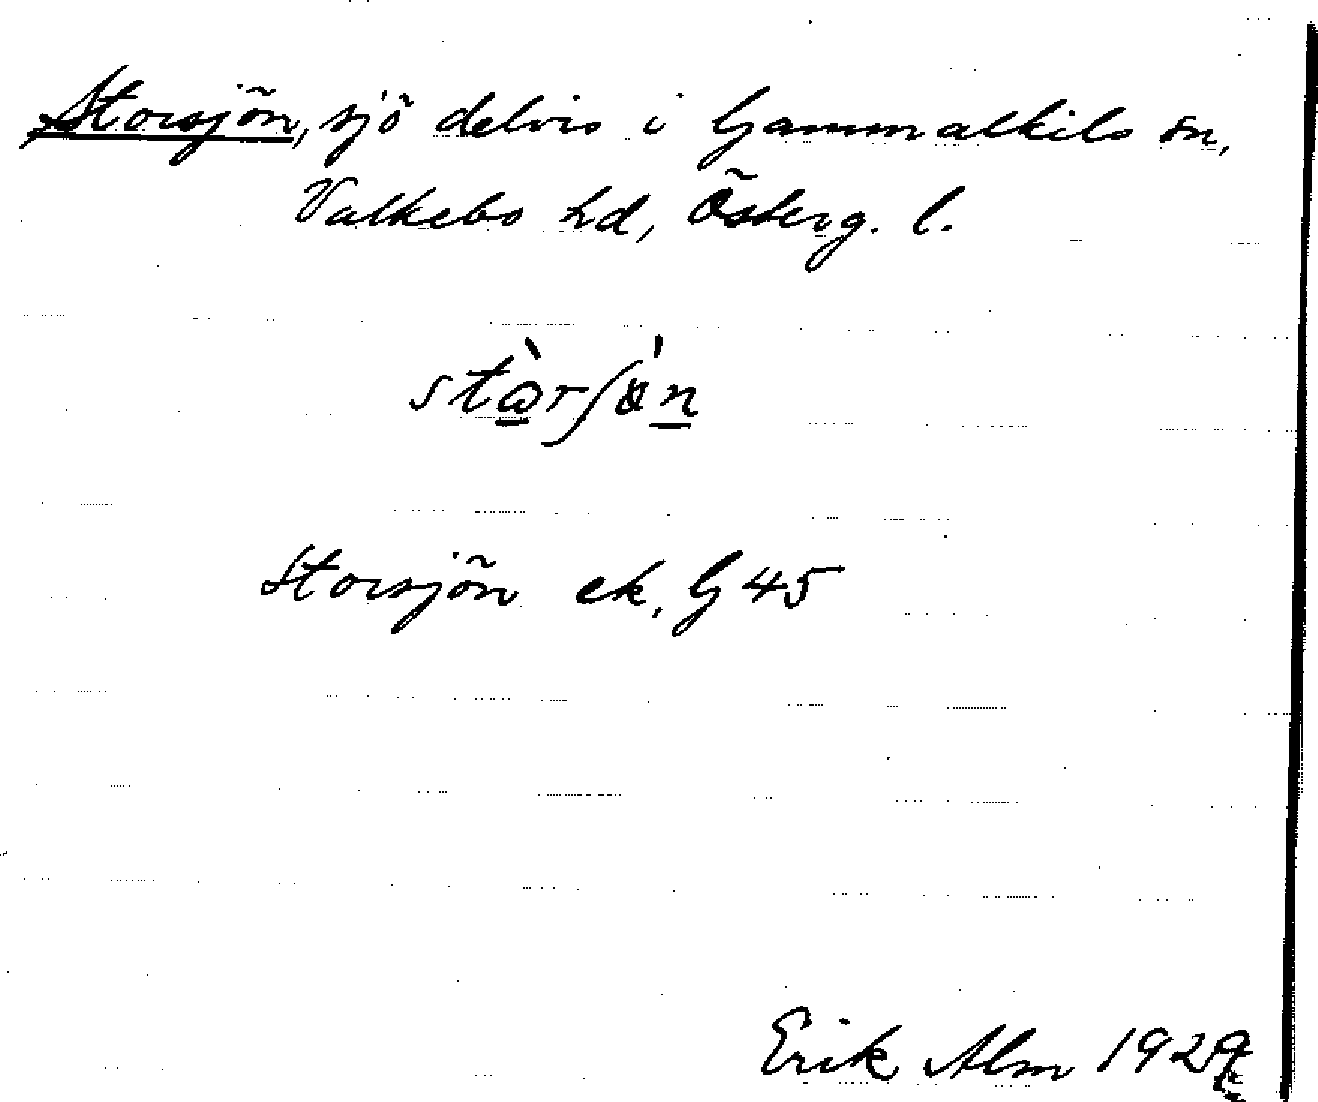 Storsjön, sjö delvis i Gammalkils sn,
Valkebo hd, Österg. l.
stɷ̀rʃɵ́n
Storsjön ek. G 45
Erik Alm 1929